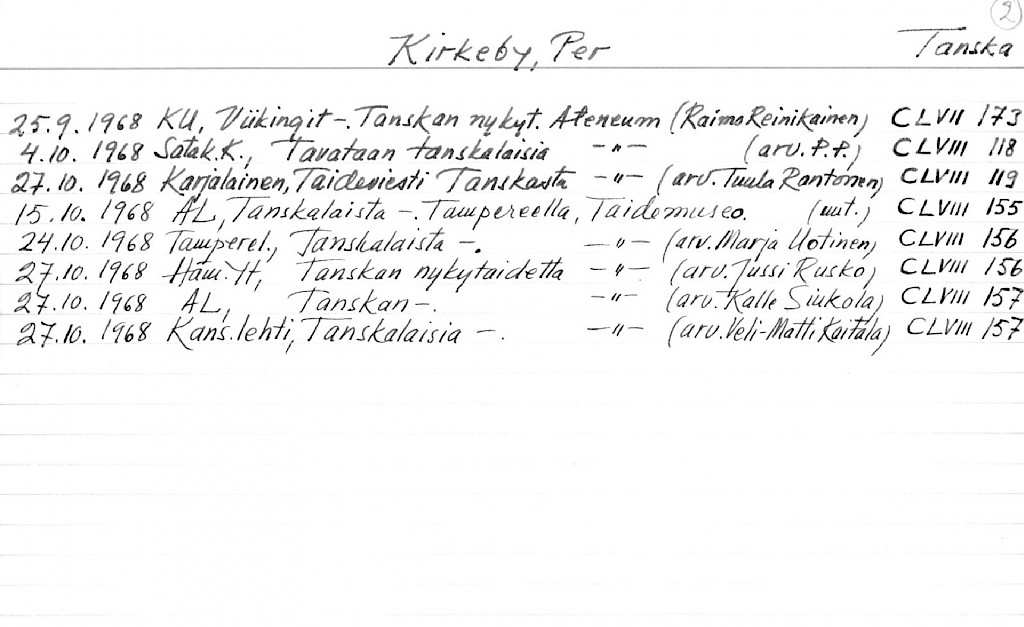 2
Kirkeby, Per Tanska
25.9.1968 KU, Viikingit -. Tanskan nykyt. Ateneum (Raimo Reinikainen) CLVII 173
4.10.1968 Satak.K., Tavataan tanskalaisia -"- (arv. P.P.) CLVIII 118
27.10.1968 Karjalainen, Taideviesti Tanskasta -"- (arv. Tuula Rantonen) CLVIII 119
15.10.1968 AL, Tanskalaista -. Tampereella, Taidemuseo. (uut.) CLVIII 155
24.10.1968 Tamperel., Tanskalaista -. -"- (arv. Marja Uotinen) CLVIII 156
27.10.1968 Häm.YH, Tanskan nykytaidetta -"- (arv. Jussi Rusko) CLVIII 156
27.10.1968 AL, Tanskan -. -"- (arv. Kalle Siukola) CLVIII 157
27.10.1968 Kans.lehti, Tanskalaisia -. -"- (arv. Veli-Matti Kaitala) CLVIII 157